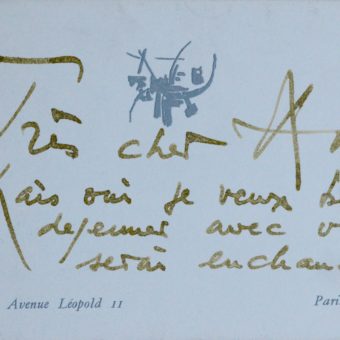 Très cher A
Mais oui je veux b
dejeuner avec v
serai enchan
Avenue Léopold II Paris